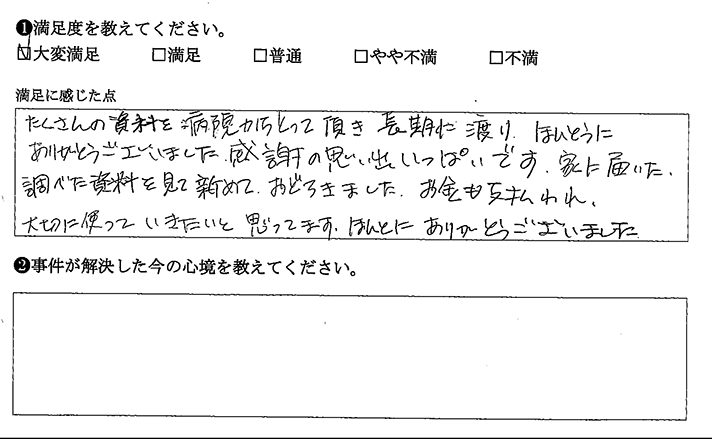 ❶満足度を教えてください。
☑大変満足 □満足 □普通 □やや不満 □不満
満足に感じた点
たくさんの資料を病院からとって頂き 長期に渡り ほんとうに
ありがとうございました。感謝の思い出いっぱいです。家に届いた、
調べた資料を見て新めて、おどろきました。お金も支払われ、
大切に使って いきたいと 思ってます。ほんとに ありがとうございました
❷事件が解決した今の心境を教えてください。